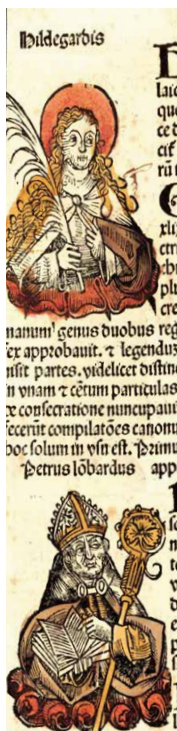 Hildegardis
laic
que
ce d
cis
rū t
xli
ctri
plu
cre
manum' genus duobus reg
sex approbauit. ⁊ legenduz
misit partes. videlicet distinc
in vnam ⁊ cētum particulas
de consecratione nuncupauit
fecerūt compilatōes canonu
hoc solum in vsu est. Primu
Petrus lōbardus app